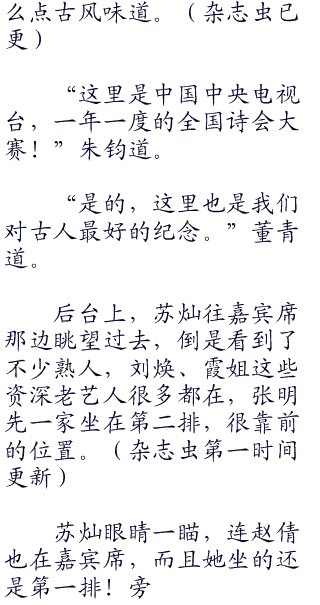 么点古风味道。（杂志虫已
更）
“这里是中国中央电视
台，一年一度的全国诗会大
赛！”朱钧道。
“是的，这里也是我们
对古人最好的纪念。”董青
道。
后台上，苏灿往嘉宾席
那边眺望过去，倒是看到了
不少熟人，刘焕、霞姐这些
资深老艺人很多都在，张明
先一家坐在第二排，很靠前
的位置。（杂志虫第一时间
更新）
苏灿眼睛一瞄，连赵倩
也在嘉宾席，而且她坐的还
是第一排！旁